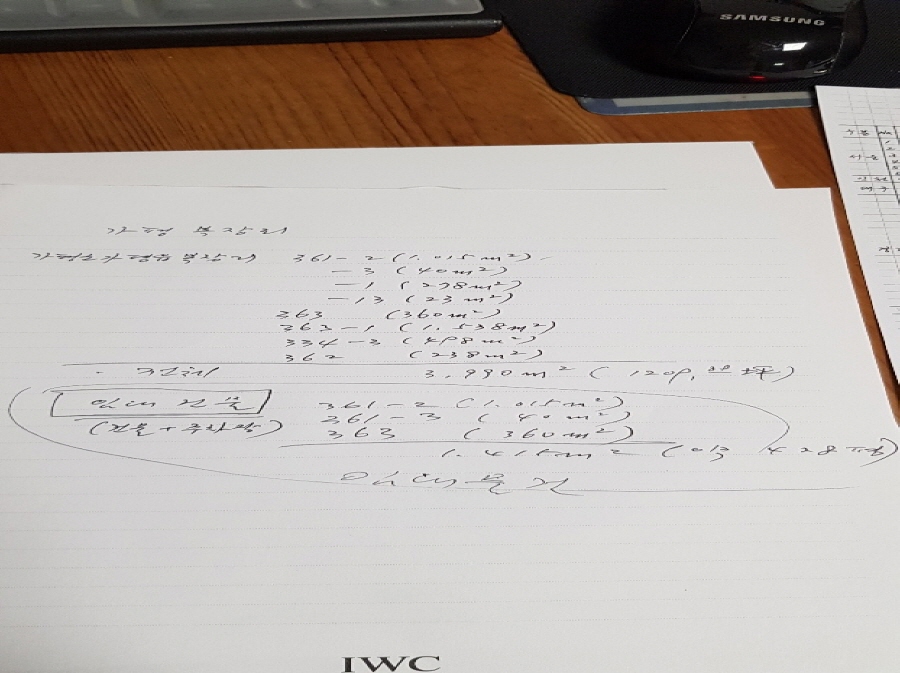 SAMSUNG
가평 복장리
가평군 가평읍 복장리 361-2 (1.015m²)
-3 (40m²)
-1 (278m²)
-13 (23m²)
363 (360m²)
363-1 (1.538m²)
334-3 (498m²)
362 (238m²)
전체 3.990m² (1209, 坪)
임대 건물 361-2 (1.015m²)
(건물+주차장) 361-3 (40m²)
363 (360m²)
1.415m² (약 428평)
임대물건
IWC